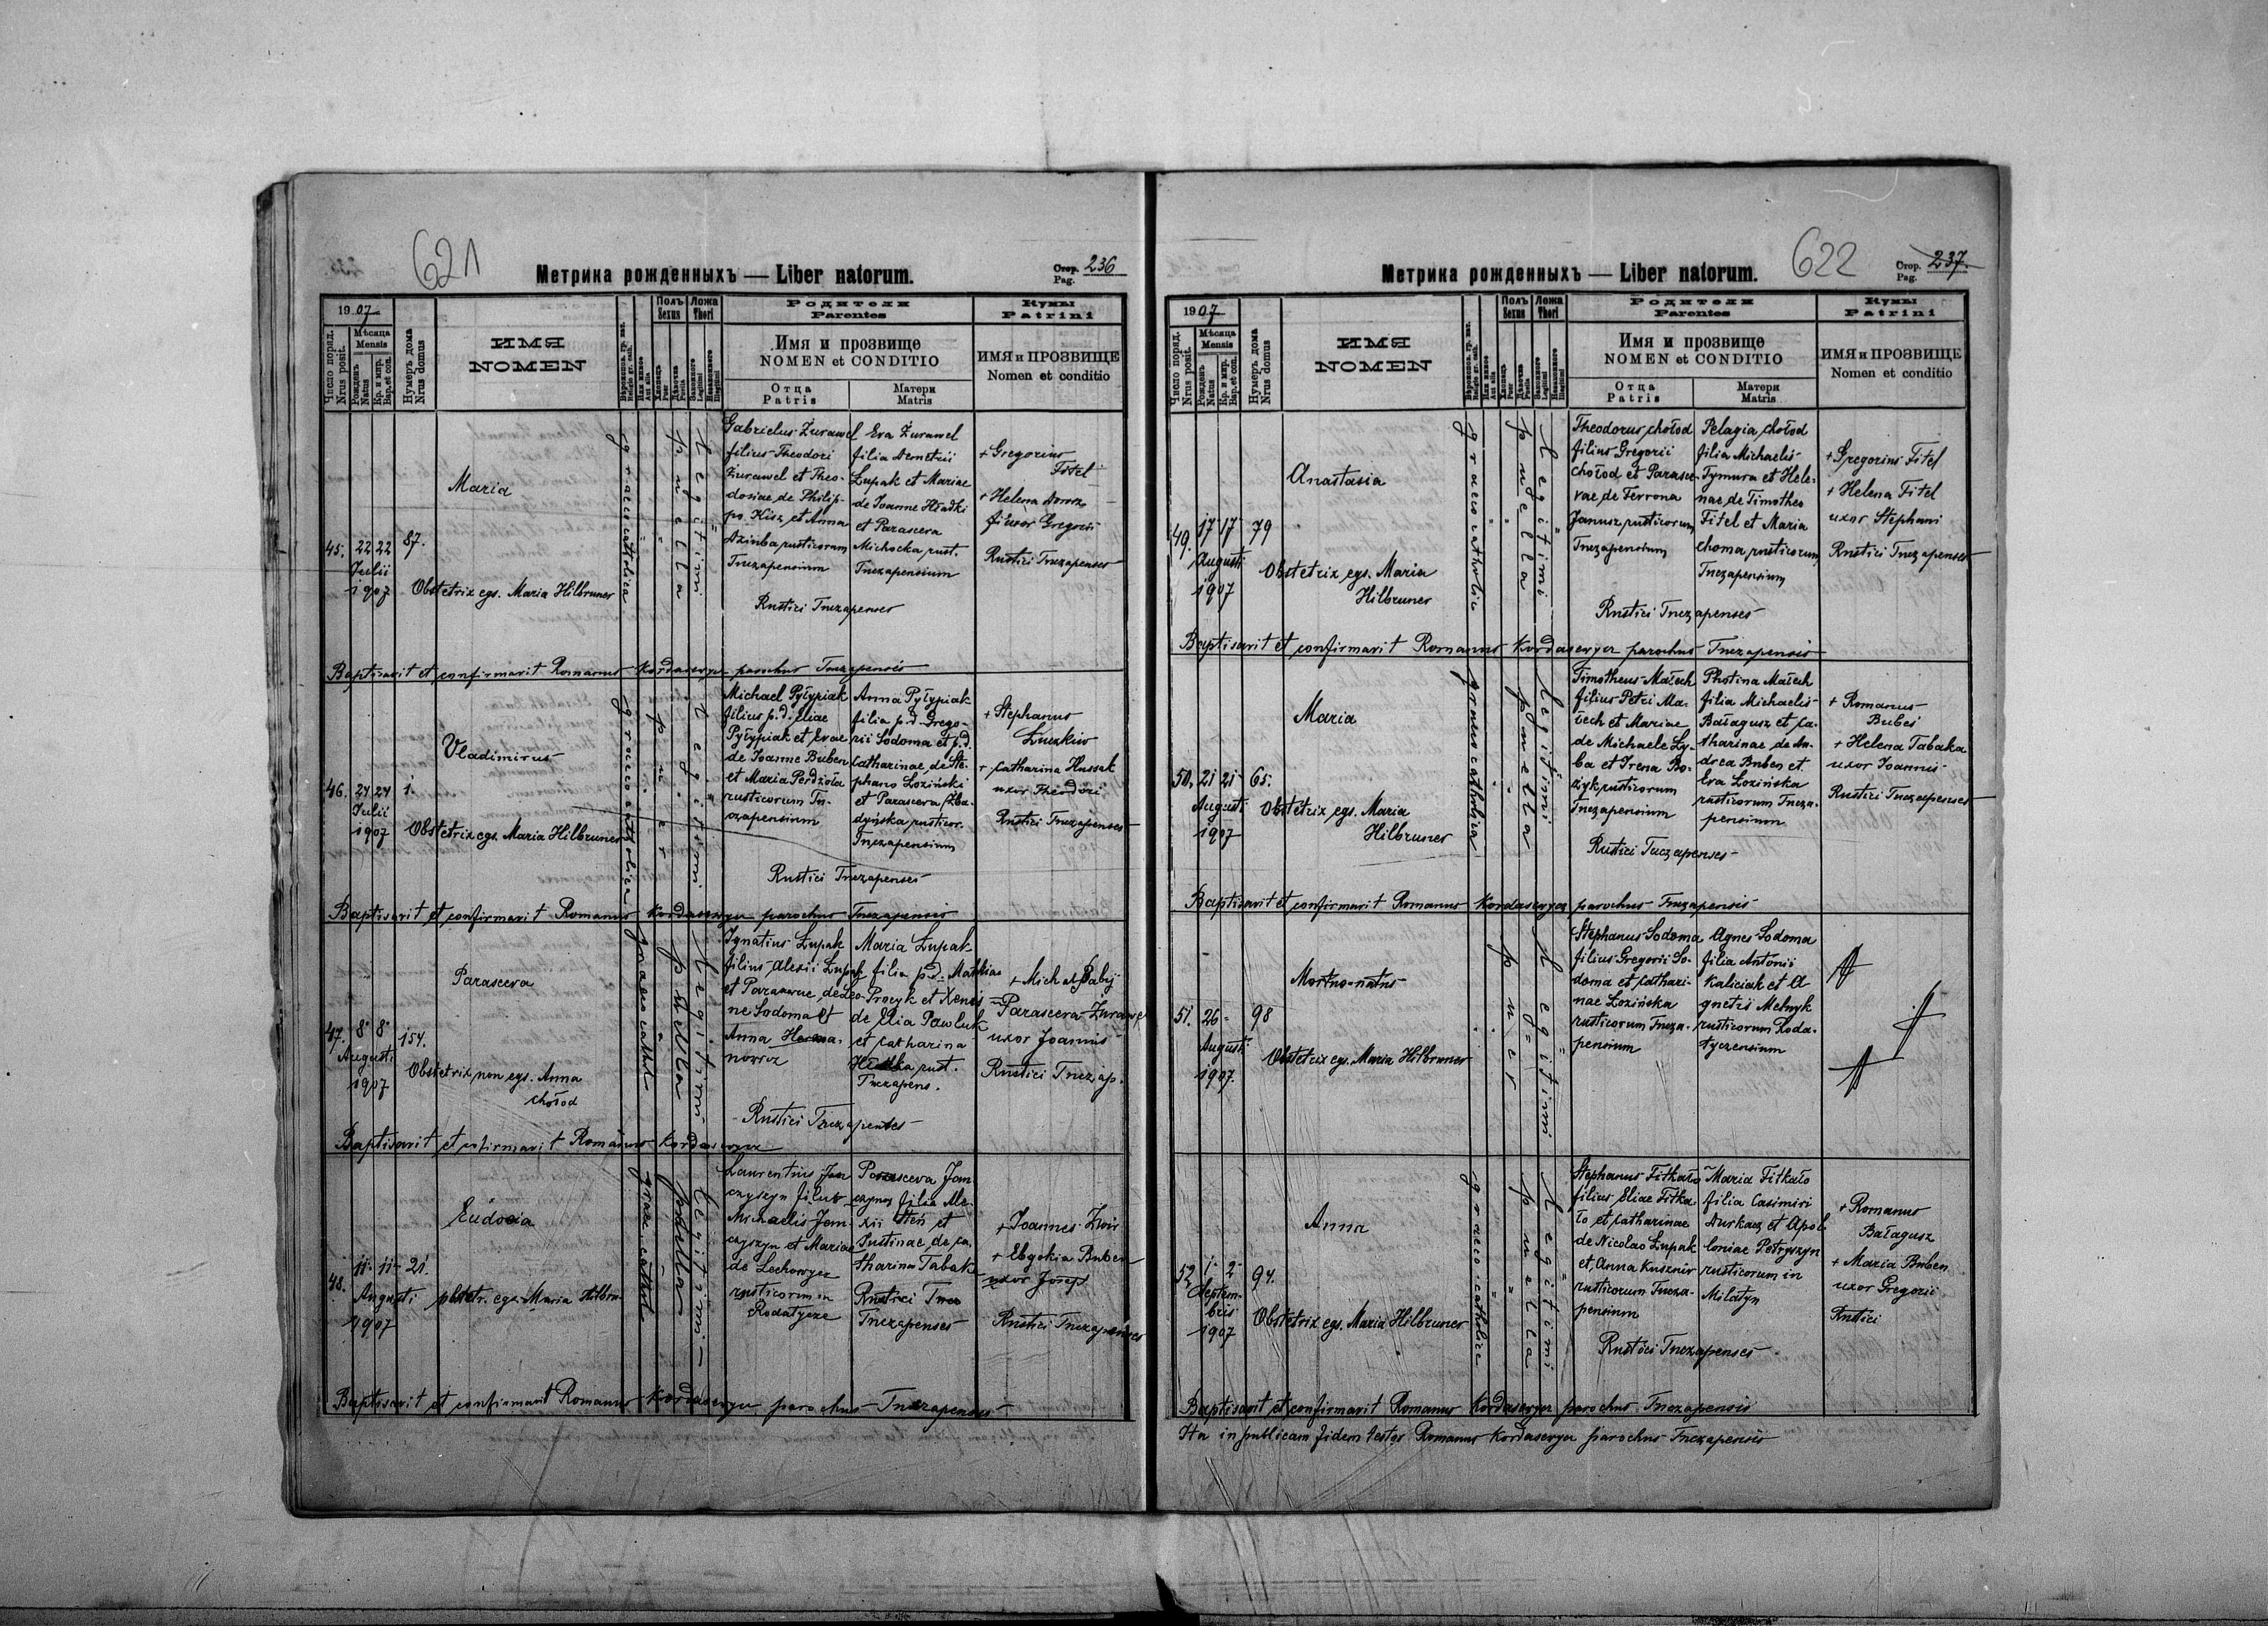 621
Метрика рожденныхъ — Liber natorum.
Стор. Pag. 236
1907
Число поряд. Nrus posit.
Мѣсяца Mensis
Рожденъ Natus
Кр. и мир. Bap. et con.
Нумеръ дома Nrus domus
ИМЯ NOMEN
Полъ Sexus
Ложа Thori
Родители Parentes
Имя и прозвище NOMEN et CONDITIO
Отца Patris
Матери Matris
Кумы Patrini
ИМЯ и ПРОЗВИЩЕ Nomen et conditio
45. 22 22 Julii 1907
87.
Maria
Obstetrix egs. Maria Hilbruner
graeco catholica
puella
Legitimi
Gabrielus Żurawel
filius Theodori
Żurawel et Theo-
dosiae de Philip-
po Kisz et Anna
Dzinba rusticorum
Tuczapensium
Eva Żurawel
filia Demetrii
Łupak et Mariae
de Joanne Hładki
et Parascera
Michocka rust.
Tuczapensium
Rustici Tuczapenses
+ Gregorius
Fitel
+ Helena
uxor Gregorii
Rustici Tuczapenses
Baptisavit et confirmavit Romanus Kordasewycz parochus Tuczapensis
46. 24 24 Julii 1907
1.
Vladimirus
Obstetrix egs. Maria Hilbruner
graeco catholica
puer
Legitimi
Michael Pyłypiak
filius p.d. Eliae
Pyłypiak et Evae
de Joanne Buben
et Maria Perdzoła
rusticorum Tu-
czapensium
Anna Pyłypiak
filia p.d. Grego-
rii Sodoma et p.d.
Catharinae de Ste-
phano Łoziński
et Parascera Zba-
dyńska rusticor.
Tuczapensium
Rustici Tuczapenses
+ Stephanus
Łuczkiw
+ Catharina Hussak
uxor Theodori
Rustici Tuczapenses
Baptisavit et confirmavit Romanus Kordasewycz parochus Tuczapensis
47. 8 8 Augusti 1907
154.
Parascera
Obstetrix non egs. Anna
Chołod
graeco cathol
puella
Legitimi
Ignatius Łupak
filius Alexii Łupak
et Parascerae de Leo-
ne Sodoma et
Anna Herma-
nowicz
Maria Łupak
filia p.d. Mathiae
Procyk et Xenis
de Elia Pawluk
et Catharina
Hładka rust.
Tuczapens.
Rustici Tuczapenses
+ Michael Babij
Parascera Żurawel
uxor Joannis
Rustici Tuczap.
Baptisavit et cofirmavit Romanus Kordasewycz
48. 11 11 Augusti 1907
21.
Eudocia
obstetr. egz. Maria Hilbru-
graec. cathol
puella
legitimi
Laurentius Jan
czyszyn filius
Michaelis Jan-
czyszyn et Mariae
de Lechowycz
rusticorum in
Rodatycze
Parasceva Jan
czyszyn filia Ale-
xii Steń et
Justinae de Ca-
tharina Tabaka
Rustici Tucz
Tuczapenses
+ Joannes Zwir
+ Ebgokia Buben
uxor Josep
Rustici Tuczapenses
Baptisavit et confirmavit Romanus Kordasewycz parochus Tuczapensis
622
Метрика рожденныхъ — Liber natorum.
Стор. Pag. 237
1907
Число поряд. Nrus posit.
Мѣсяца Mensis
Рожденъ Natus
Кр. и мир. Bap. et con.
Нумеръ дома Nrus domus
ИМЯ NOMEN
Полъ Sexus
Ложа Thori
Родители Parentes
Имя и прозвище NOMEN et CONDITIO
Отца Patris
Матери Matris
Кумы Patrini
ИМЯ и ПРОЗВИЩЕ Nomen et conditio
49. 17 17 Augusti 1907
79
Anastasia
Obstetrix egs. Maria
Hilbruner
graeco catholic
puella
Legitimi
Theodorus Chołod
filius Gregorii
Chołod et Parasce-
vae de Ferrona
Janusz rusticorum
Tuczapensium
Pelagia Chołod
filia Michaelis
Tymura et Hele-
nae de Timotheo
Fitel et Maria
Choma rusticorum
Tuczapensium
Rustici Tuczapenses
+ Gregorius Fitel
+ Helena Fitel
uxor Stephani
Rustici Tuczapenses
Baptisavit et confirmavit Romanus Kordasewycz parochus Tuczapensis
50. 21 21 Augusti 1907
65.
Maria
Obstetrix egs. Maria
Hilbruner
graeco catholica
puella
legitimi
Timotheus Małech
filius Petri Ma-
łech et Mariae
de Michaele Ly-
ba et Irena Bo-
zyk rusticorum
Tuczapensium
Photina Małech
filia Michaelis
Bałagusz et Ca-
tharinae de An-
drea Buben et
Eva Łozińska
rusticorum Tucza-
pensium
Rustici Tuczapenses
+ Romanus
Buben
+ Helena Tabaka
uxor Joannis
Rustici Tuczapenses
Baptisavit et confirmavit Romanus Kordasewycz parochus Tuczapensis
51. 26 - Augusti 1907.
98
Mortuo-natus
Obstetrix egs. Maria Hilbruner
puer
Legitimi
Stephanus Sodoma
filius Gregorii So-
doma et Cathari-
nae Łozińska
rusticorum Tucza-
pensium
Agnes Sodoma
filia Antonii
Kaliciak et A
gnetis Melnyk
rusticorum Roda-
tyczensium
52 1 2 Septem-
bris
1907
94.
Anna
Obstetrix egs. Maria Hilbruner
graeco-catholice
puella
Legitimi
Stephanus Fitkało
filius Eliae Fitka-
ło et Catharinae
de Nicolao Łupak
et Anna Kusznir
rusticorum Tucza-
pensium
Maria Fitkało
filia Casimiri
Durkacz et Apol-
loniae Petryszyn
rusticorum in
Milatyn
Rustici Tuczapenses
+ Romanus
Bałagusz
+ Maria Buben
uxor Gregorii
Rustici
Baptisavit et confirmavit Romanus Kordasewycz parochus Tuczapensis
Ita in publicam fidem testor Romanus Kordasewycz parochus Tuczapensis